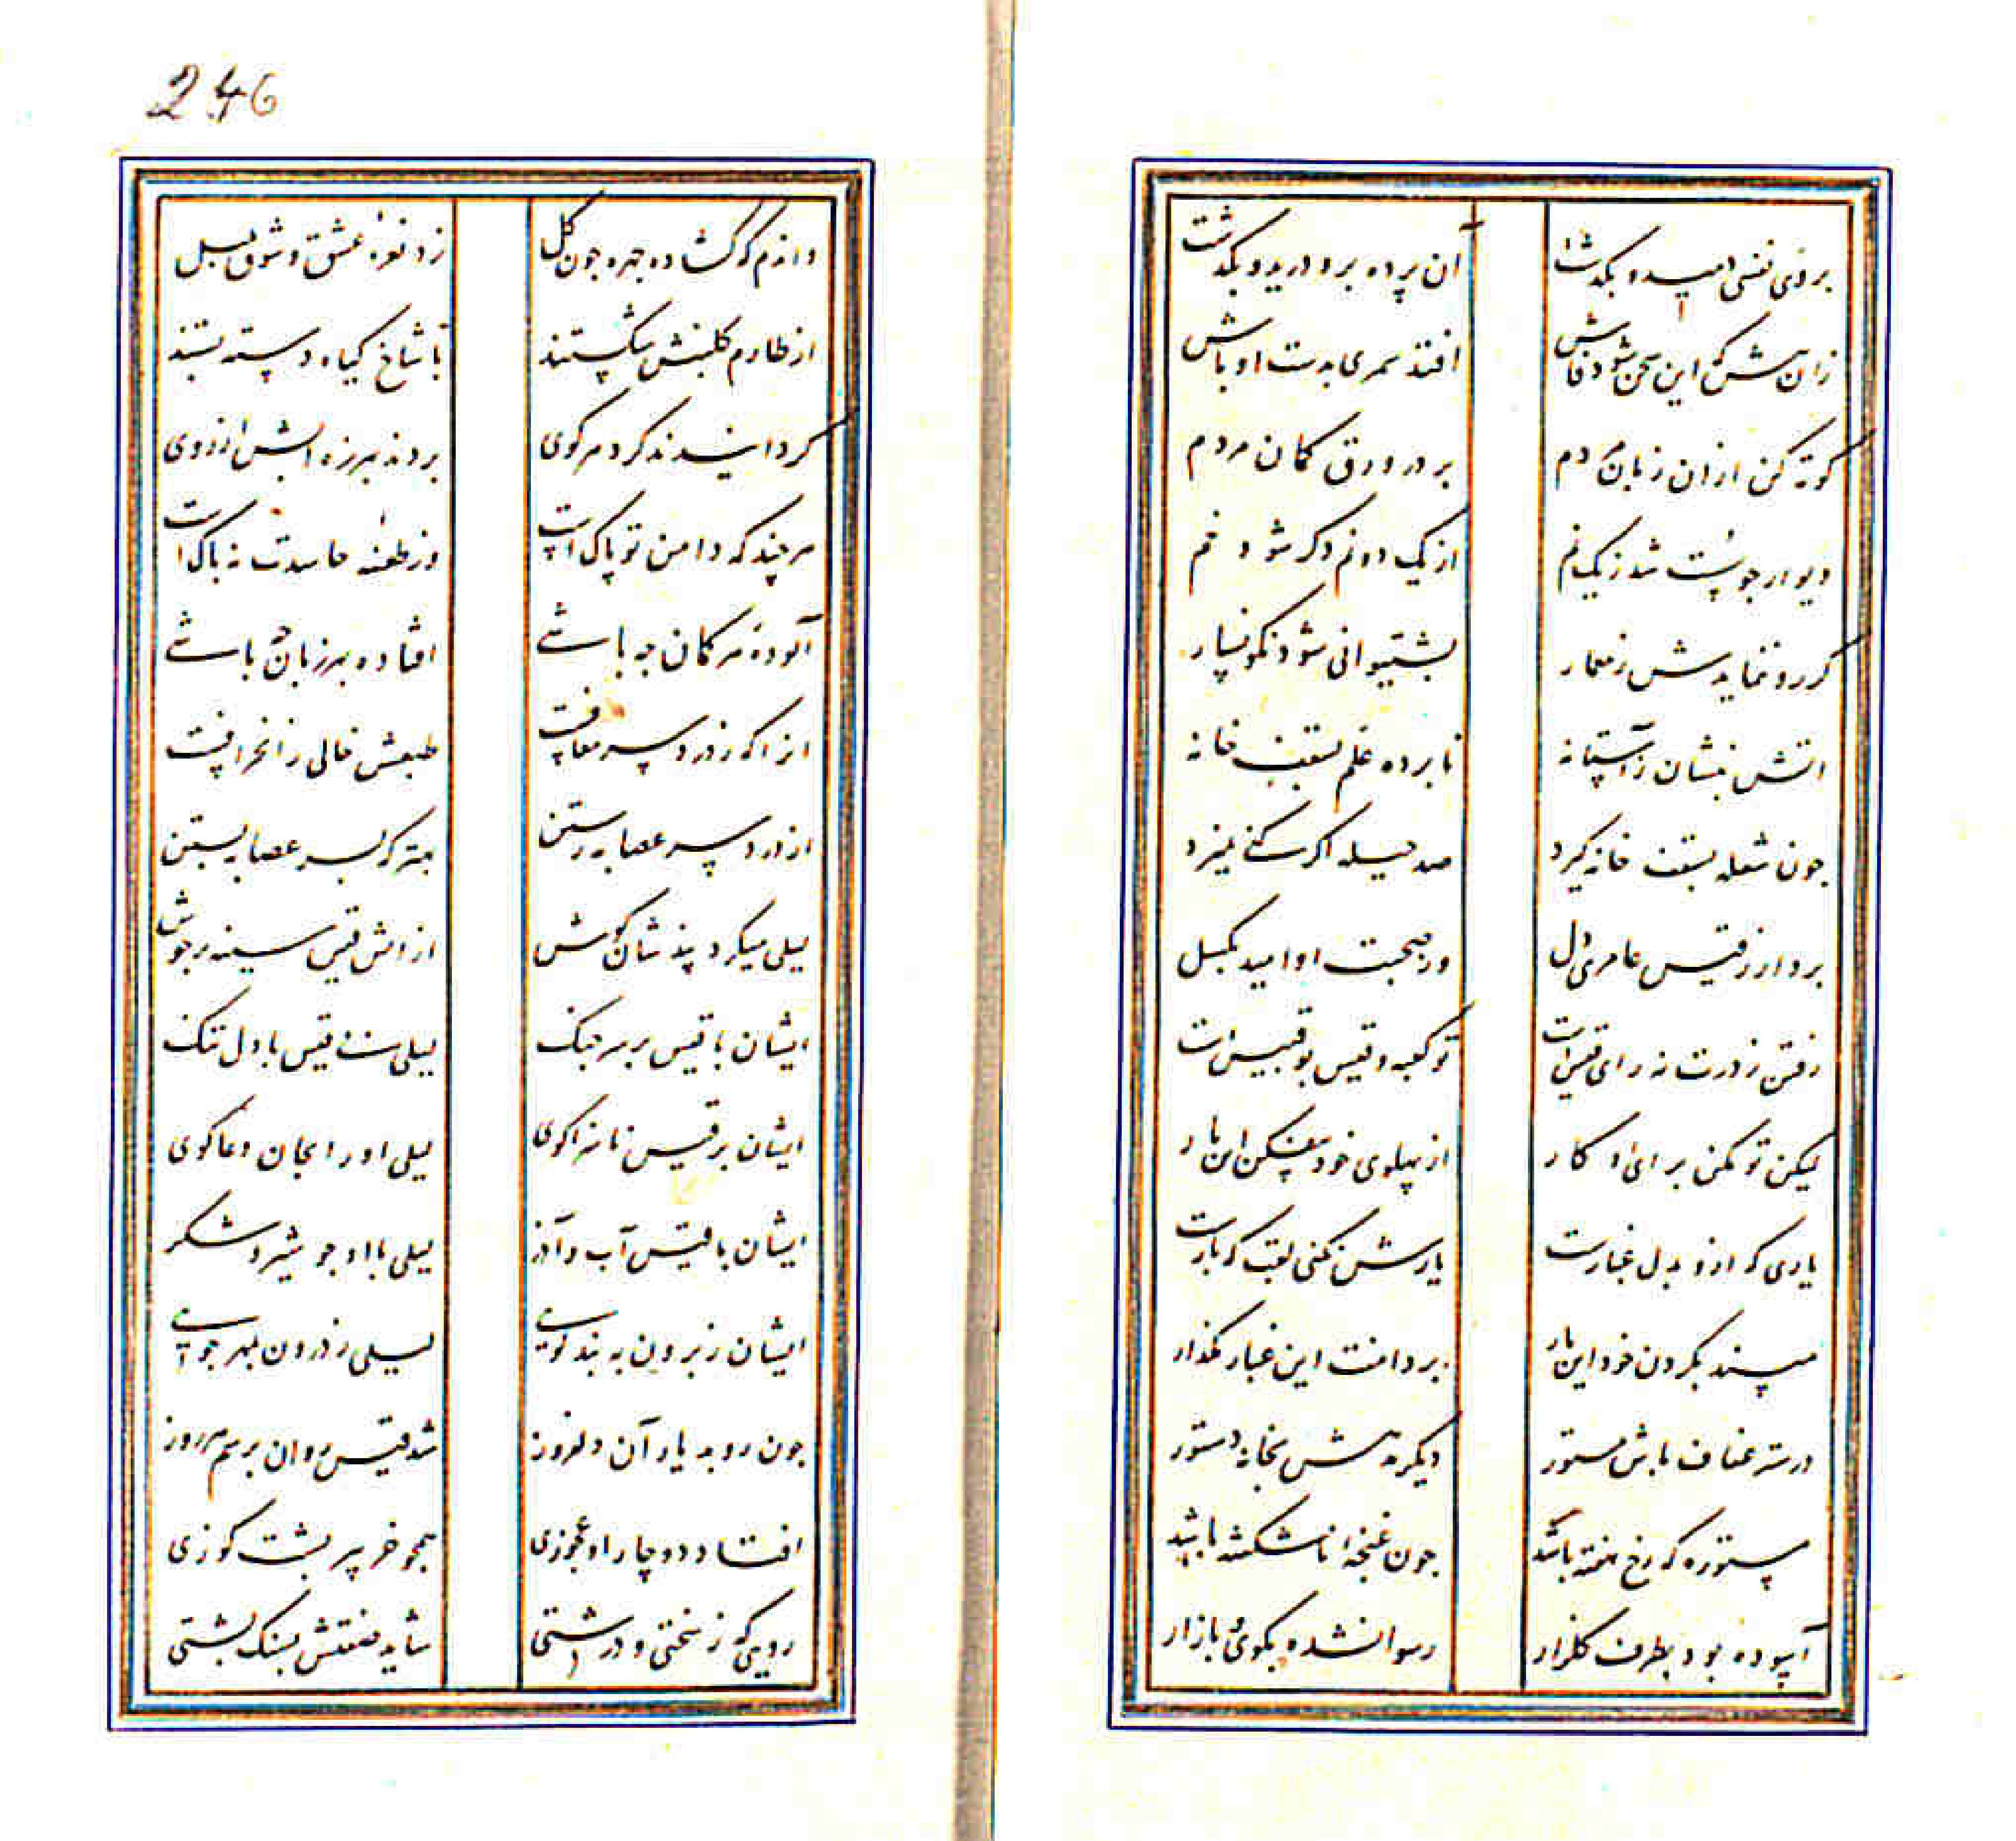 بروی نفسی دمید و بگذشت
آن پرده برو درید و بگذشت
زان پیش که این سخن شود فاش
افتد سمری بدست اوباش
کوته کن ازان زبان مردم
بر در ورق کمان مردم
دیوار جو پست شد ز یک نم
از یک دو نم دکر شود خم
کر رو ننماید ش ز معمار
بشتیوانی شود نکونسار
اتش بنشان ز آستانه
نابرده علم بسقف خانه
جون شعله بسقف خانه کیرد
صد حیله اکر کنی نمیرد
بردار ز قیس عامری دل
وز صحبت او امید بکسل
رفتن ز درت نه رای قیس است
تو کعبه و قیس بوقبیس است
لیکن تو مکن برای او کار
از پهلوی خود بیفکن این بار
یاری که ازو بدل غبارست
یارش نکنی لقب که بارست
مپسند بکردن خود این بار
بر دامنت این غبار مکذار
در ستر عفاف باش مستور
دیکر مدهش بخانه دستور
مستوره که رخ نهفته باشد
جون غنجه ناشکفته باشد
آسوده بود بطرف کلزار
رسوا نشده بکوی و بازار
246
واندم که کشاده جهره جون کل
زد نعره عشق و شوق بلبل
از طارم کلبنش شکستند
با شاخ کیاه دسته بستند
کردانیدند کرد هر کوی
بردند بهرزه ابش از روی
هر چند که دامن تو پاک است
وز طعنه حاسدت نه باک است
آلوده هر کمان جه باشی
افتاده بهر زبان جه باشی
انرا که ز درد سر معافیست
طبعش خالی ز انحرافیست
از درد سر عصابه رستن
بهتر که بسر عصابه بستن
لیلی میکرد پندشان کوش
از اتش قیس سینه بر جوش
ایشان با قیس بر سر جنک
لیلی ز پی قیس با دل تنک
ایشان بر قیس ناسزا کوی
لیلی او را بجان دعا کوی
ایشان با قیس آب و آذر
لیلی با او جو شیر و شکر
ایشان ز برون به پند کویی
لیلی ز درون بمهر جویی
جون رو بدیار آن دلفروز
شد قیس روان برسم هر روز
افتاد دو چار او عجوزی
همجو خر پیر پشت کوزی
رویی که ز سختی و درشتی
شاید صفتش بسنک پشتی